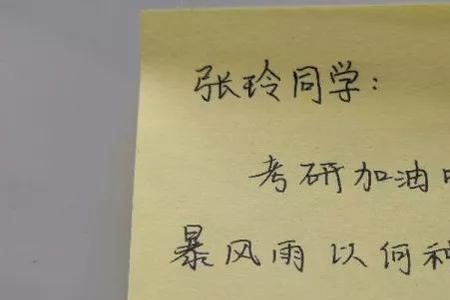 张玲同学：
考研加油
暴风雨以何种